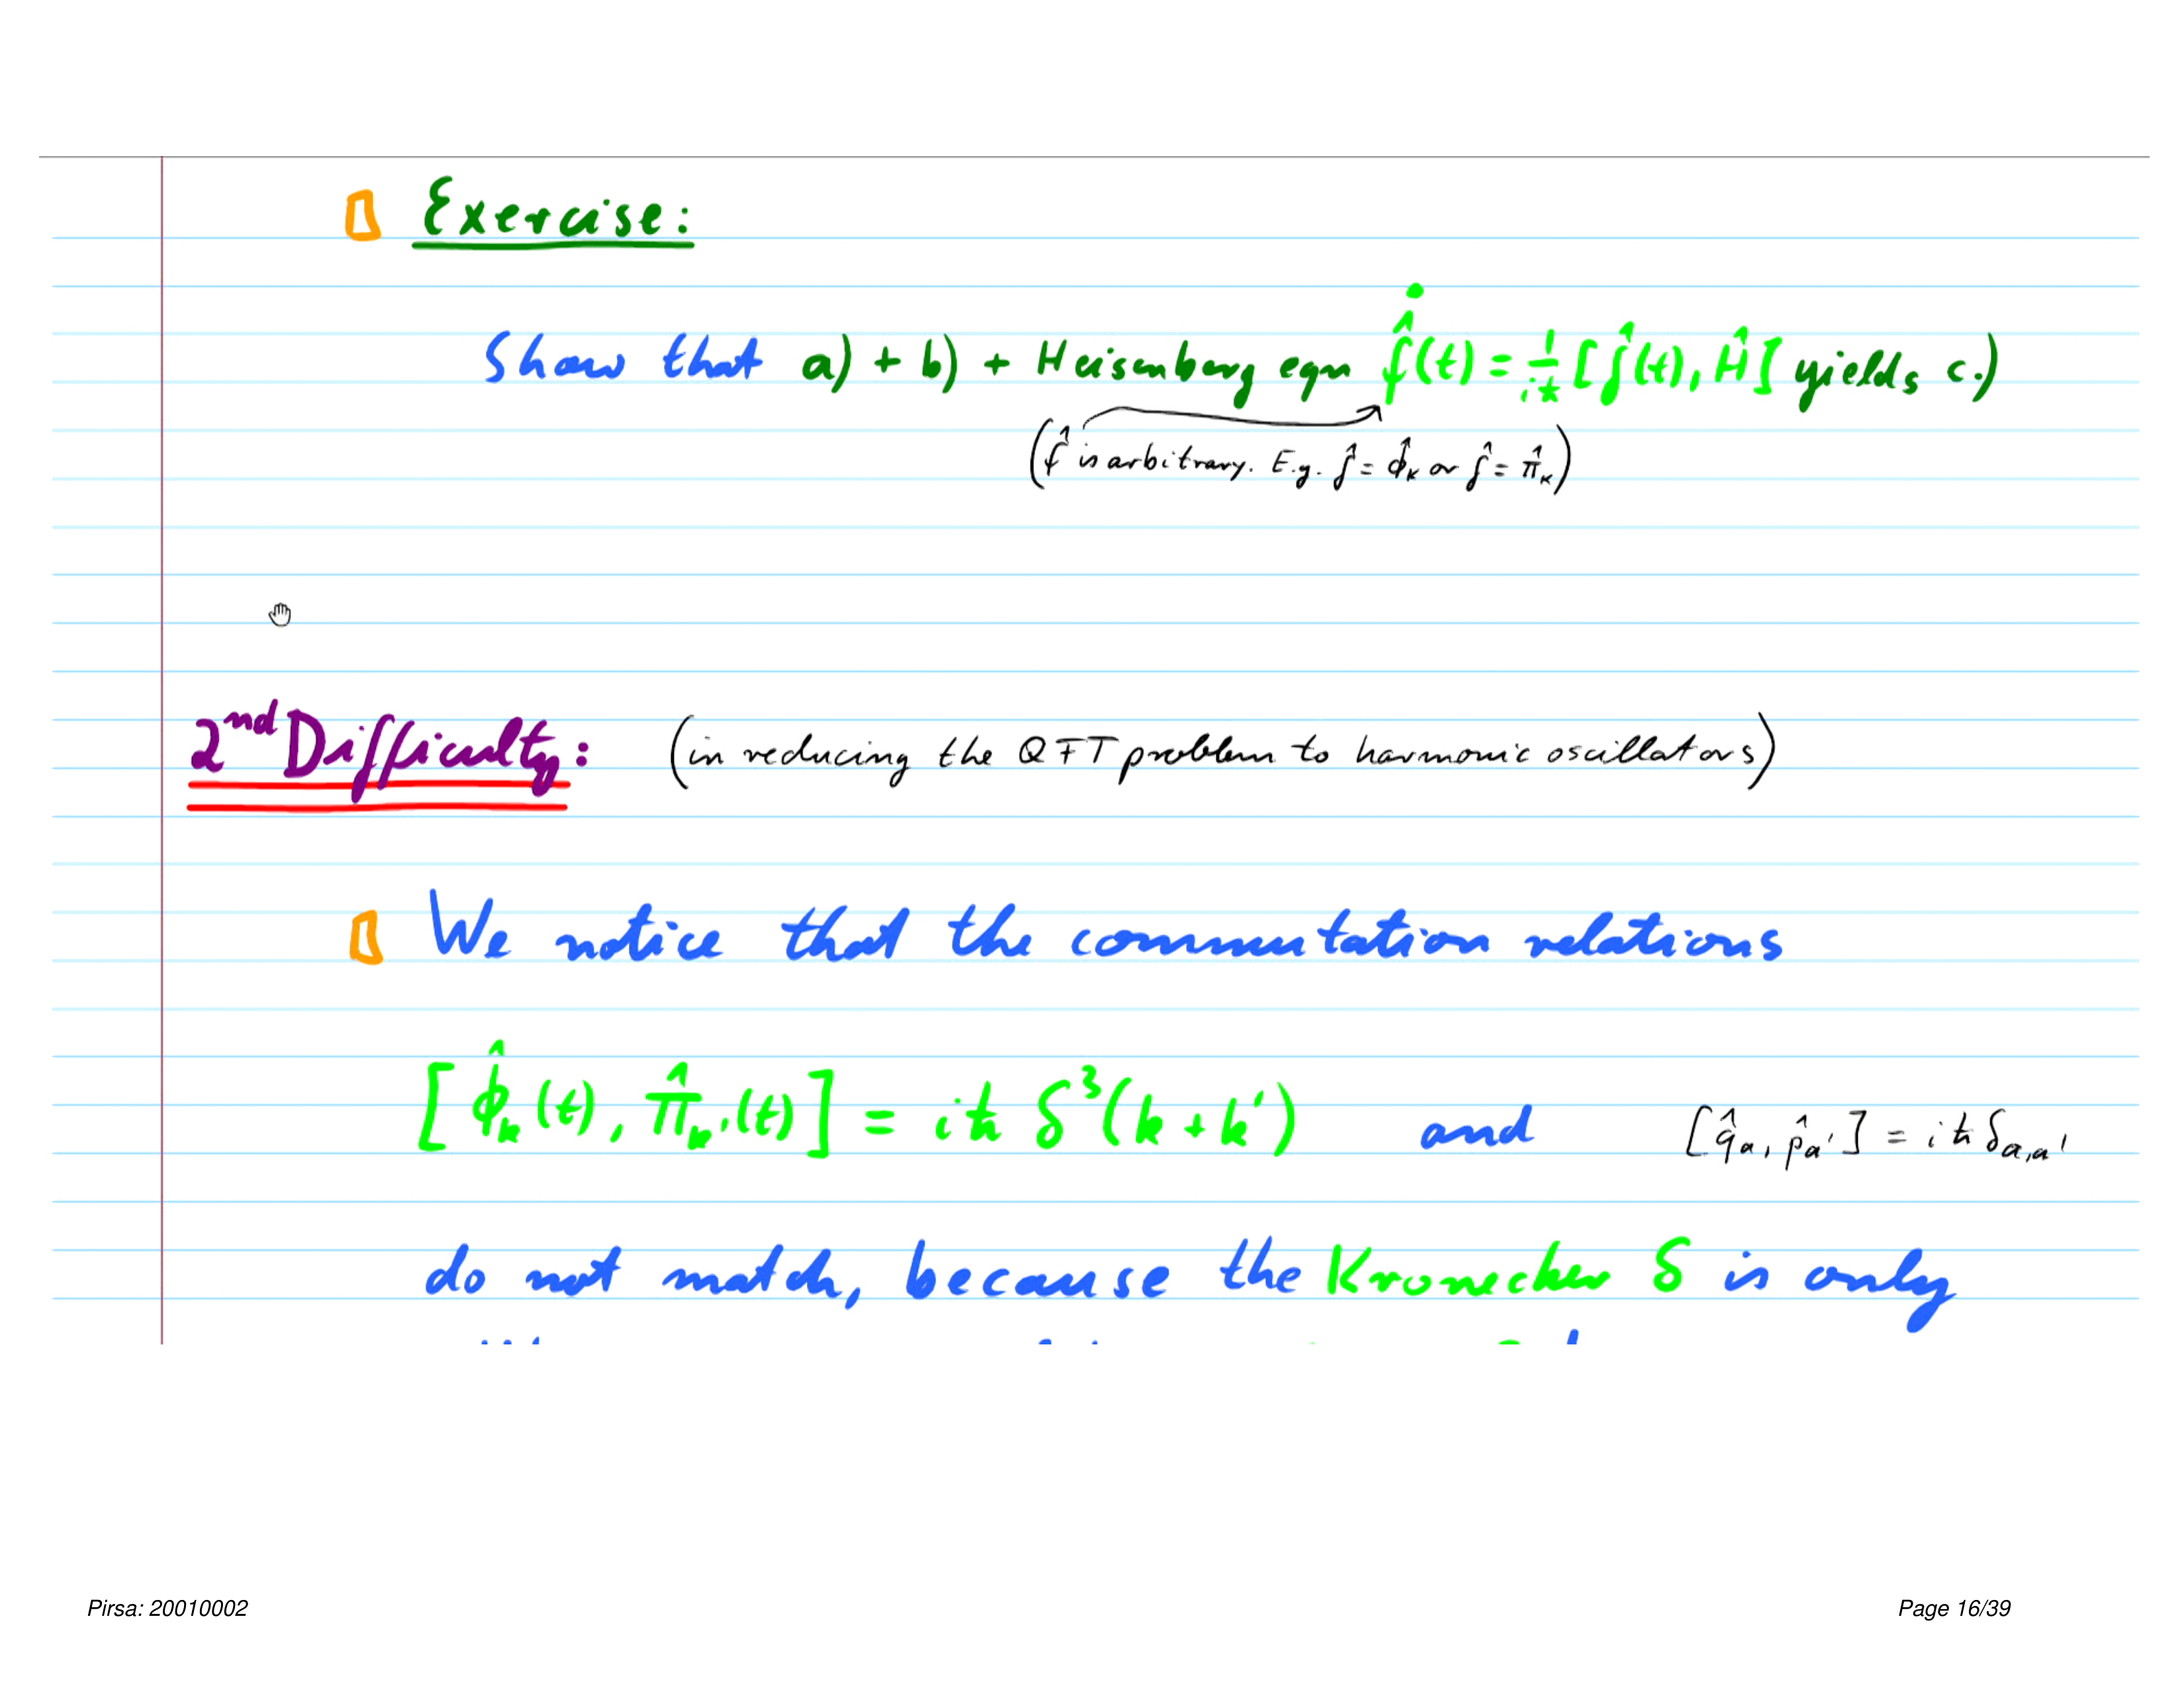 Exercise:
Show that a) + b) + Heisenberg eqn \dot{\hat{f}}(t) = \frac{1}{iħ} [\hat{f}(t), \hat{H}] yields c.)
(\hat{f} is arbitrary. E.g. \hat{f} = \hat{ϕ}_k or \hat{f} = \hat{π}_k)
2nd Difficulty: (in reducing the QFT problem to harmonic oscillators)
We notice that the commutation relations
[\hat{ϕ}_k(t), \hat{π}_{k'}(t)] = iħ δ^3(k + k') and [\hat{q}_a, \hat{p}_{a'}] = iħ δ_{a,a'}
do not match, because the Kronecker δ is only
Pirsa: 20010002 Page 16/39